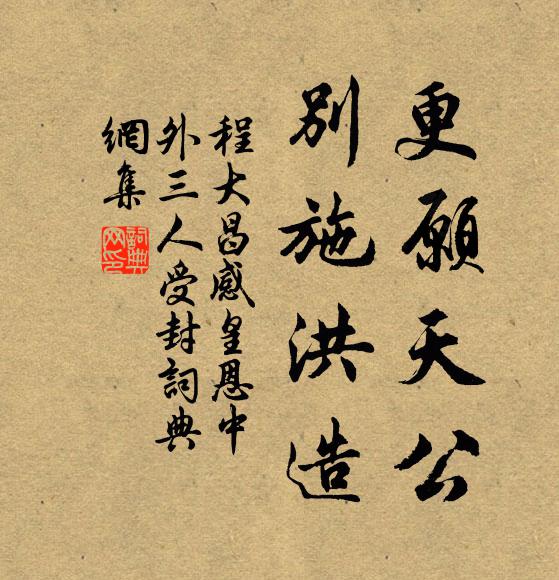 更願天公
別施洪造
程大昌感皇恩中
外三人受封詞典
網集
詞典
网印